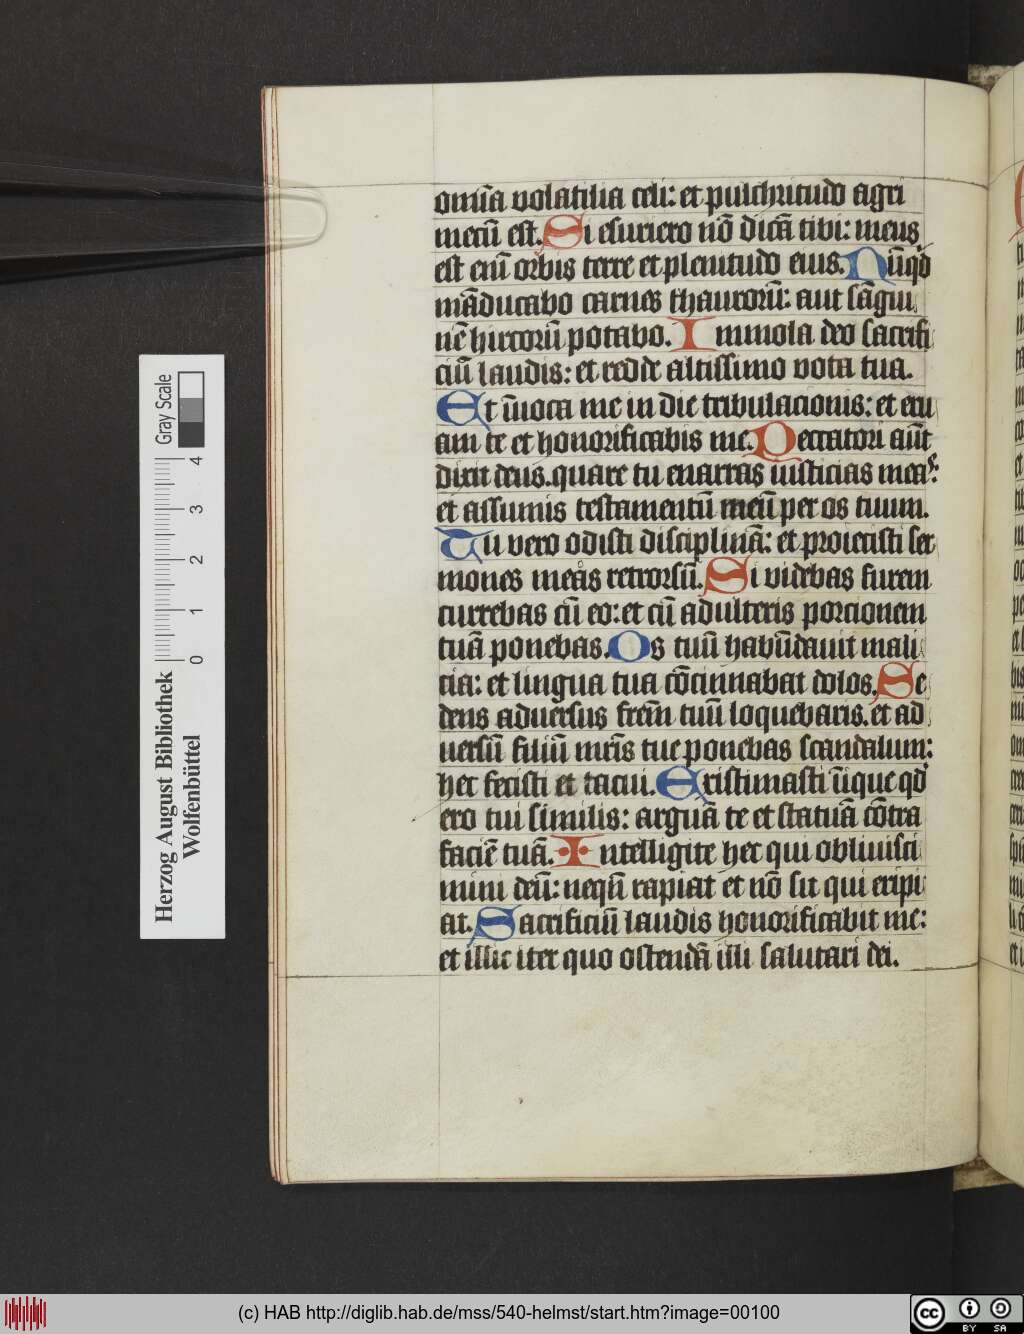 om̄ia volatilia celi: et pulchritudo agri
mecū est. Si esuriero nō dicā tibi: meus
est enī orbis terre et plenitudo eius. Nūqd
māducabo carnes thaurorū: aut sāgui
nē hircorū potabo. Immola deo sacrifi
ciū laudis: et redde altissimo vota tua.
Et īuoca me in die tribulacionis: et eru
am te et honorificabis me. Peccatori aūt
dixit deus. quare tu enarras iusticias meas:
et assumis testamentū meū per os tuum.
Tu vero odisti disciplinā: et proiecisti ser
mones meos retrorsū. Si videbas furem
currebas cū eo: et cū adulteris porcionem
tuā ponebas. Os tuū habūdauit mali
cia: et lingua tua cōcinnabat dolos. Se
dens aduersus frēm tuū loquebaris. et ad
uersū filiū mr̄is tue ponebas scandalum:
hec fecisti et tacui. Existimasti īique qd
ero tui similis: arguā te et statuā cōtra
faciē tuā. Intelligite hec qui obliuisci
mini deū: nequā rapiat et nō sit qui eripi
at. Sacrificiū laudis honorificabit me:
et illic iter quo ostendā illi salutari dei.
Herzog August Bibliothek
Wolfenbüttel
0 1 2 3 4
Gray Scale
(c) HAB http://diglib.hab.de/mss/540-helmst/start.htm?image=00100
cc BY SA